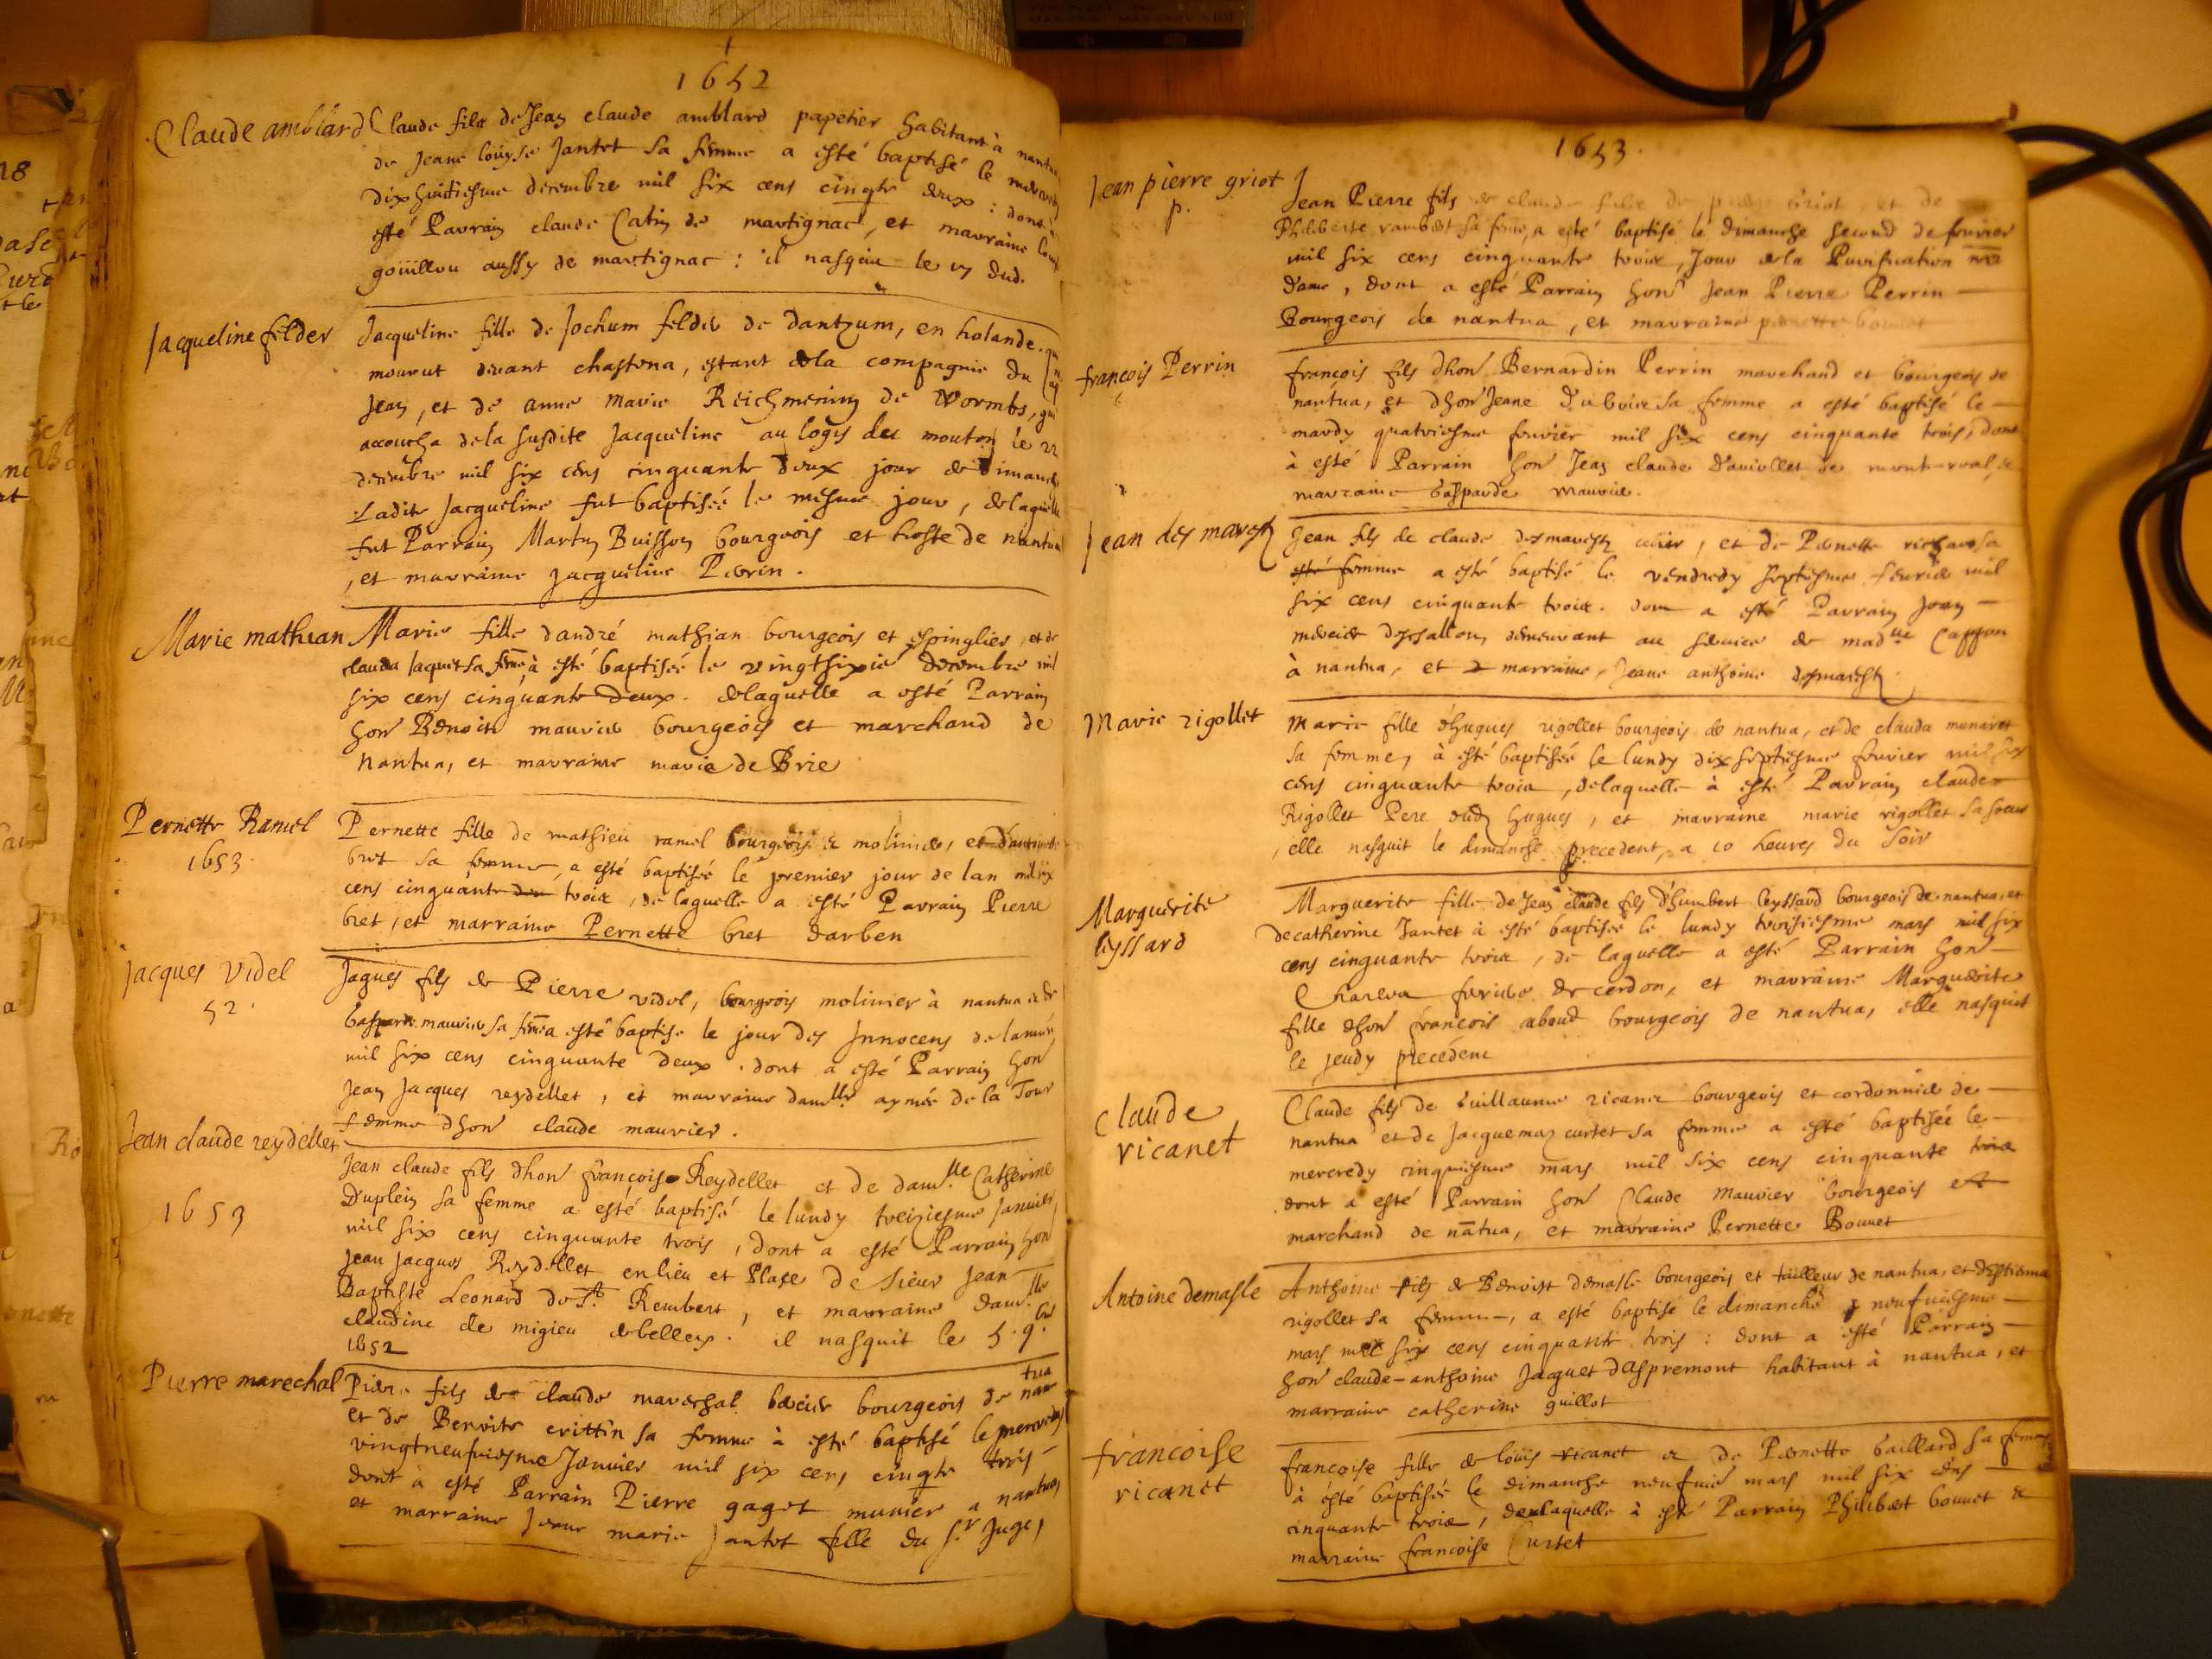 1652
Claude amblard
Claude filz de Jean claude amblard papetier habitant à
de Jeane loüyse Jantet sa femme a esté baptisé le
dixhuitiesme decembre mil six cens cinqte deux : dont a
esté Parrain claude Catin de martignac, et marraine
goüillou aussy de martignac : il nasquit le 17 dud.
Jacqueline felder
Jacqueline fille de Jochum felder de dantzum, en holande. qui
mourut devant chastena, estant de la compagnie du
Jean, et de anne marie Reichmenin de Wormbs, qui
accoucha de la susdite Jacqueline au logis des mouton le 22
decembre mil six cens cinquante deux jour de dimanche
Ladite Jacqueline fut baptisée le mesme jour, de laquelle
fut Parrain Martin Buisson bourgeois et hoste de nantua
, et marraine Jacqueline Perrin .
Marie mathian
Marie fille dandré mathian bourgeois et espinglier, et de
clauda Jaquet sa feme à esté baptisée le vingtsixie decembre mil
six cens cinquante deux. de laquelle a esté Parrain
hon Benoite maurier bourgeois et marchand de
Nantua, et marraine marie de Brie
Pernette Ramel
1653.
Pernette fille de mathieu ramel bourgeois & molinier, et
bret sa femme, a esté baptisée le premier jour de lan mil six
cens cinquante trois, de laquelle a esté Parrain Pierre
bret, et marraine Pernette bret darben
Jacques Videl
52.
Jaques fils de Pierre vidol, bourgeois molinier à nantua et de
gasparde maurier sa feme a esté baptise le jour des Innocens de lannée
mil six cens cinquante deux . dont a esté Parrain hon
Jean Jacques reydellet, et marraine damlle aymée de la Tour
femme dhon claude maurier .
Jean claude reydellet
1653
Jean claude fils dhon françois Reydellet et de damlle Catherine
Duplein sa femme a esté baptisé le lundy treiziesme Janvier
mil six cens cinquante trois, dont a esté Parrain hon
Jean Jacques Reydellet en lieu et Place de Sieur Jean
Baptiste Leonard de St Rembert, et marraine damlle
claudine de migieu de belley. il nasquit le 5. 9bre
1652
Pierre marechal
Pierre fils de claude mareschal bourgeois de nantua
et de Benoite crittin sa femme à esté baptisé le mercredy
vingtneufviesme Janvier mil six cens cinqte trois
dont à esté Parrain Pierre gaget munier a nantua,
et marraine Jeane marie Jantet fille du Sr Juge,
1653.
Jean pierre griot
p.
Jean Pierre fils de claude griot, et de
Philiberte rambert sa feme, a esté baptisé le dimanche second de fevrier
mil six cens cinquante trois, Jour de la Purification nre
Dame, dont a esté Parrain hon Jean Pierre Perrin
Bourgeois de nantua, et marraine pernette bonnet
françois Perrin
françois fils dhon Bernardin Perrin marchand et bourgeois de
nantua, et dhon Jeane Dubois sa femme a esté baptisé le
mardy quatriesme fevrier mil six cens cinquante trois, dont
à esté Parrain hon Jean claude de mont-real, &
marraine Gasparde maurier.
Jean des marestz
Jean fils de claude desmarestz, et de Pernette richard sa
esté femme a esté baptisé le vendredy septiesme fevrier mil
six cens cinquante trois. dont a esté Parrain Jean
mercier deschallon, demeurant au service de madlle Cappon
à nantua, et marraine, Jeane anthoine desmarestz.
Marie rigollet
Marie fille dhugues rigollet bourgeois de nantua, et de clauda munaret
sa femme, à esté baptisée le lundy dix septiesme fevrier mil six
cens cinquante trois, de laquelle à esté Parrain claude
Rigollet Pere dud hugues, et marraine marie rigollet sa soeur
, elle nasquit le dimanche precedent, a 10 heures du Soir
Marguerite
leyssard
Marguerite fille de Jean claude fils Dhumbert leyssard bourgeois de nantua, et
de catherine Jantet à esté baptisée le lundy troisiesme mars mil six
cens cinquante trois, de laquelle a esté Parrain hon
de cerdon, et marraine Marguerite
fille dhon françois aboud bourgeois de nantua, elle nasquit
le jeudy precedent
claude
ricanet
Claude fils de Guillaume ricanet bourgeois et cordonnier de
nantua et de Jacquema curtet sa femme a esté baptisée le
mercredy cinquiesme mars mil six cens cinquante trois
dont a esté Parrain hon Claude Mauvier bourgeois et
marchand de nātua, et marraine Pernette Bonnet
Antoine demasle
Anthoine fils de Benoist demasle bourgeois et tailleur de nantua, et destiema
rigollet sa femme, a esté baptisé le dimanche neufviesme
mars mil six cens cinquante trois : dont a esté Parrain
hon claude-anthoine Jacquet daspremont habitant à nantua, et
marraine catherine guillot
francoise
ricanet
françoise fille de loüis ricanet & de Pernette Gaillard sa feme
à esté baptisée le dimanche neufvie mars mil six cens
cinquante trois, de laquelle à esté Parrain Philibert bonnet &
marraine francoise Curtet